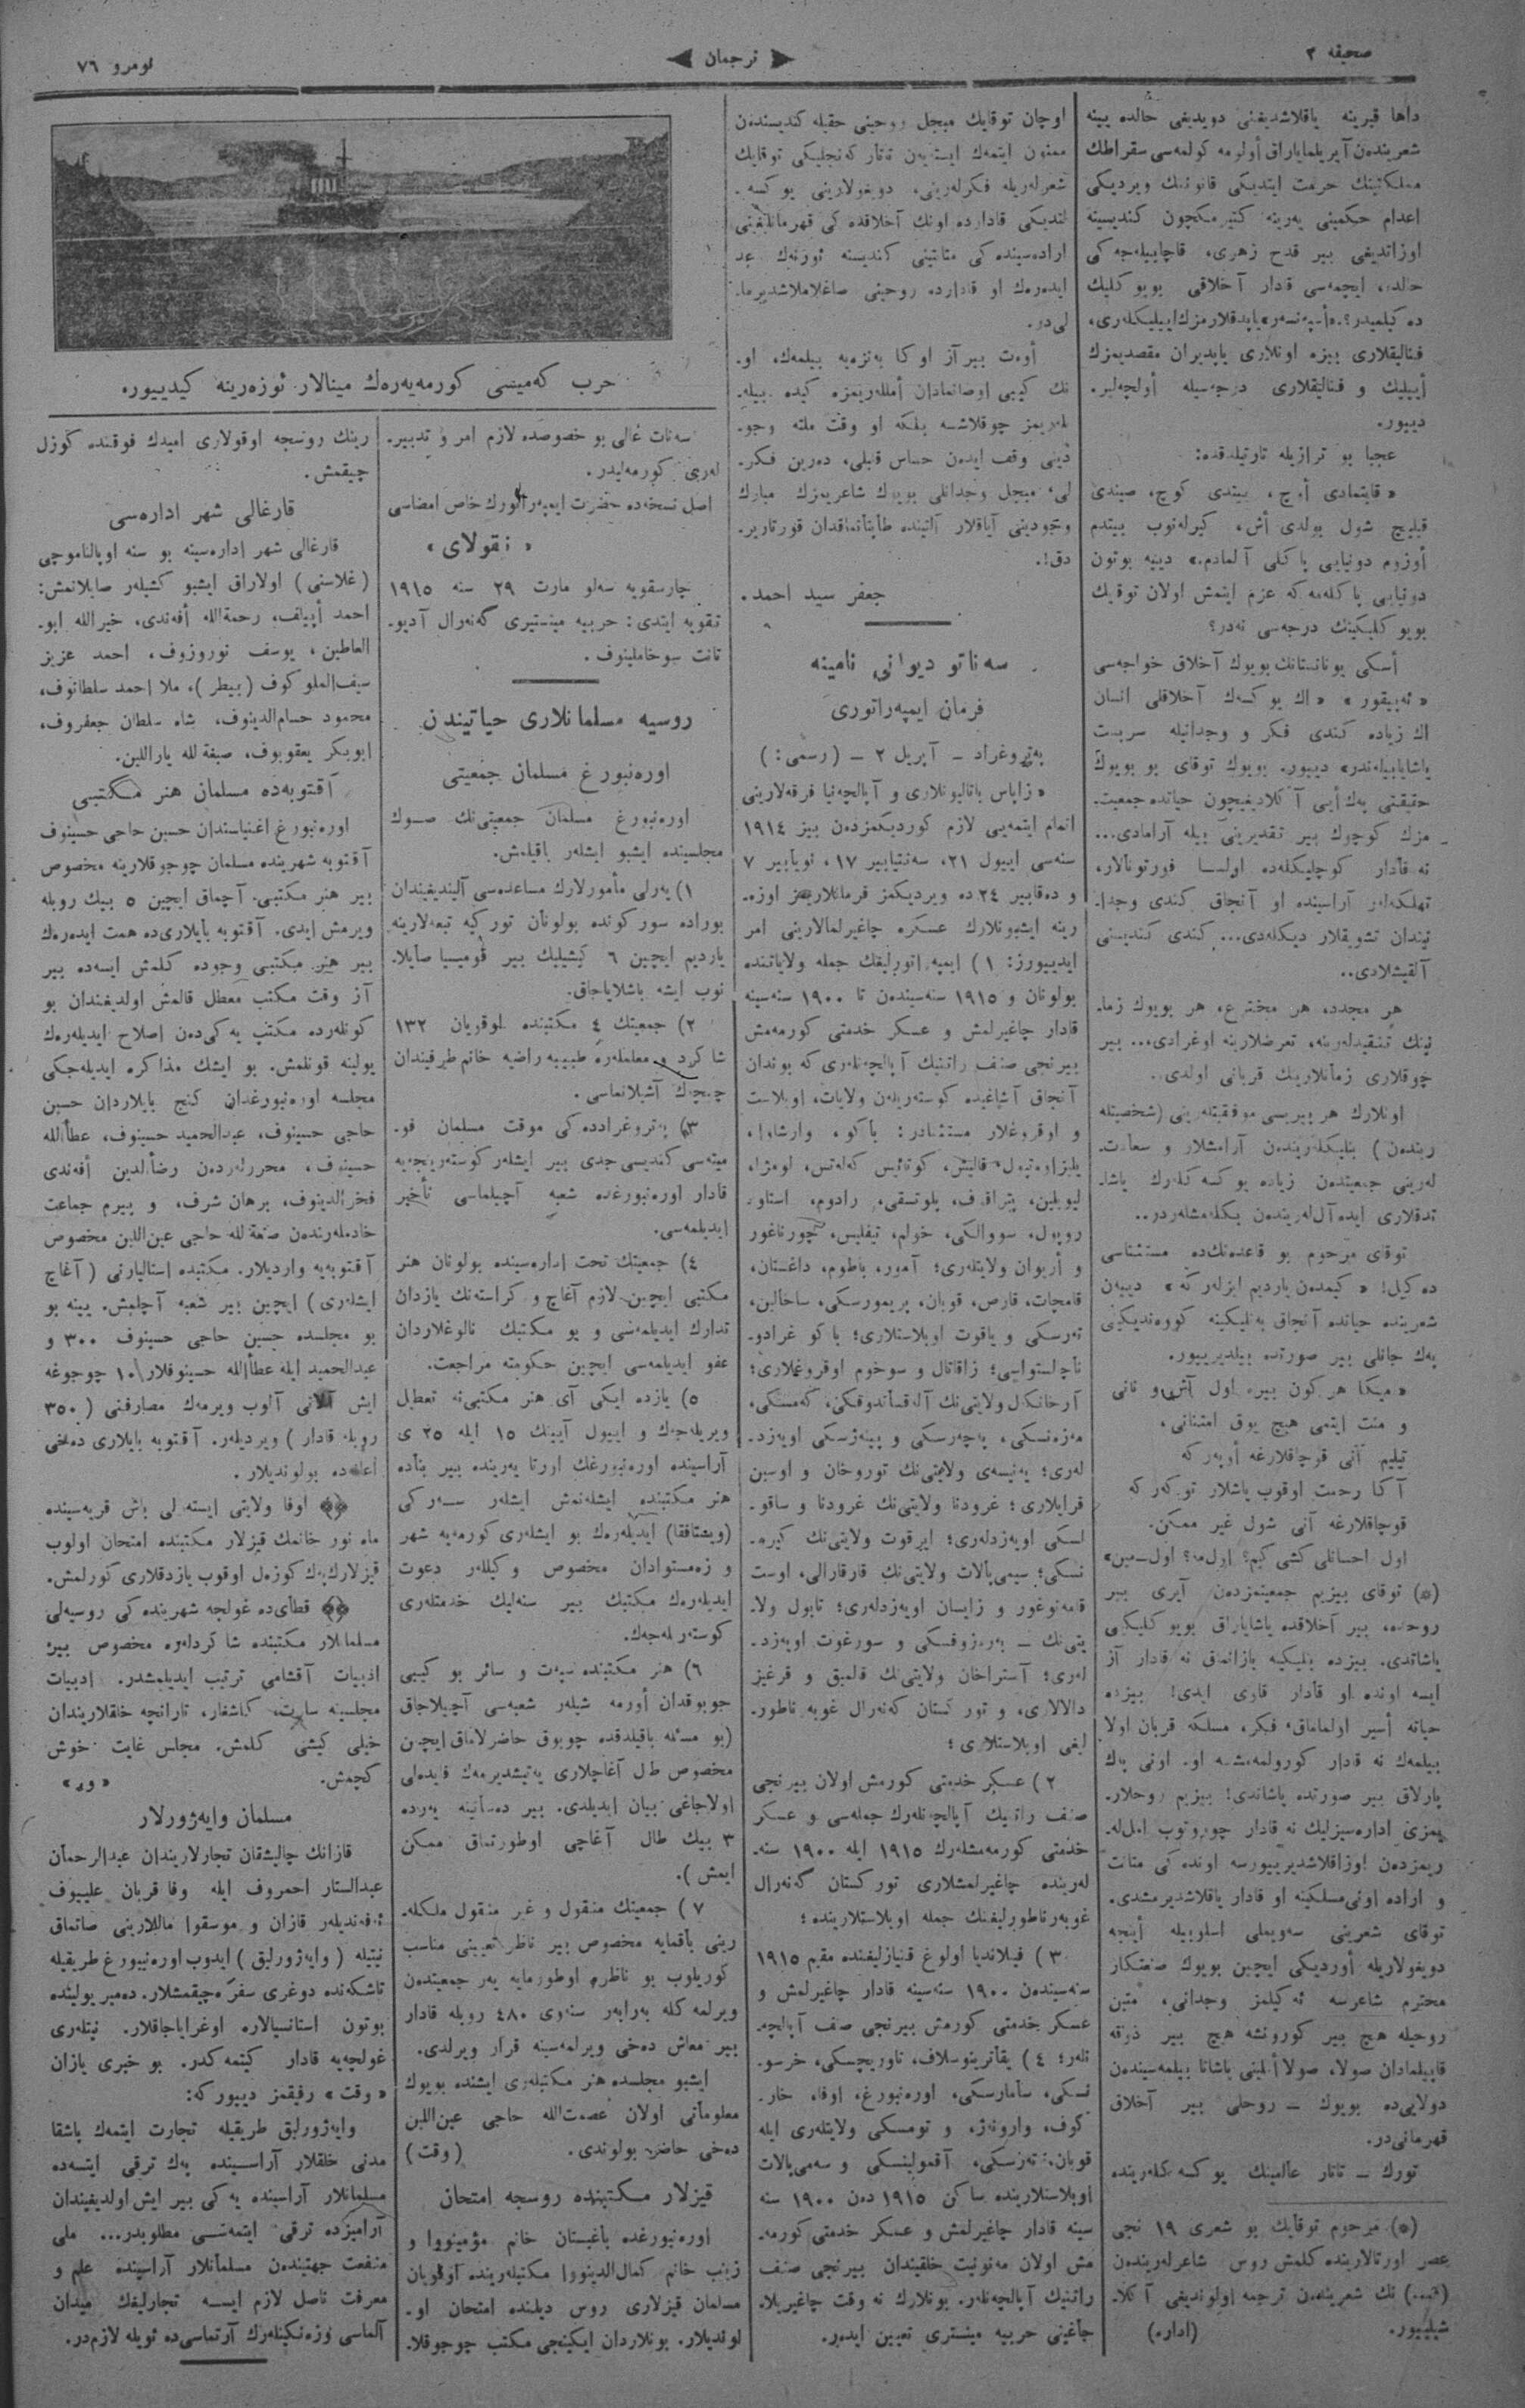 صحیفه ٢
ترجمان
نومرو ٧٦
داها قبرینه یاقلاشدیغنی دویدیغی حالده یینه
شعریندەن آیریلمایاراق أولومه کولمەسی سقراطك
مملکتینك حرمت ایتدیکی قانونك ویردیکی
اعدام حکمینی یەرینه کتیرمكچون کندیسینه
اوزاتدیغی بیر قدح زهری، قاچابیلەجەکی
حالده، ایچمەسی قادار آخلاقی بویوکلیك
دەکیلمیدر؟
فنالیقلاری بیزه اونلاری یاپدیران مقصدیمزك
أییلیك و فنالیقلاری درجەسیله أولچەلیر.
دییور.
عجبا بو ترازیله تارتیلدقده:
« قایتمادی أوچ، بیتدی کوچ، صیندی
قیلیچ شول بولدی أش، کیرلەنوب بیتدم
أوزوم دونیایی پاکلی آلمادم.» دییه بوتون
دونیایی پاکلەمەکه عزم ایتمش اولان توقایك
بویوکلیکینك درجەسی نەدر؟
أسکی یونانستانك بویوك آخلاق خواجەسی
« ئەپیقور » « اك یوکسەك آخلاقلی انسان
اك زیاده کندی فکر و وجدانیله سربست
یاشایابیلەندر» دییور. بویوك توقای بو بویوك
حقیقتی پەك أیی آکلادیغیچون حیاتده جمعیت-
مزك کوچوك بیر تقدیرینی بیله آرامادی...
نه قادار کوچلیکلەده اولسا فورتونالار،
تهلکەلەر آراسینده او آنجاق کندی وجدا-
نیندان تشویقلار دیکلەدی... کندی کندیسنی
آلقیشلادی..
هر مجدد، هر مخترع، هر بویوك زما-
نینك تنقیدلەرینه، تعرضلارینه اوغرادی... بیر
چوقلاری زمانلارینك قربانی اولدی.
اونلارك هر بیریسی موفقیتلەرینی (شخصیتله
ریندەن) بنلیکلەریندەن آرامشلار و سعادت-
لەرینی جمعیتدەن زیاده یوکسەکلەرك یاشا-
تدقلاری ایدەآللەریندەن بکلەمشلەردر..
توقای مرحوم بو قاعدەنك‌ده مستثناسی
دەکیل! « کیمدەن یاردیم ایزلەرکه » دییەن
شعرینده حیاتده آنجاق بەنلیکینه کووەندیکینی
پەك جانلی بیر صورتده بیلدیرییور.
« میکا هر کون بیره اول آش و نانی
و منت ایتمی هیچ یوق امتنانی،
تیلیم آنی قوچاقلارغه أوپەرکه
آکا رحمت اوقوب یاشلار توکەرکه
قوچاقلارغه آنی شول غیر ممکن.
اول احسانلی کشی کیم؟ اول‌مه؟ اول-مین»
(*) توقای بیزیم جمعیتمزدەن آیری بیر
روحده، بیر آخلاقده یاشایاراق بویوکلیکینی
یاشاتدی. بیزده بنلیکیه یازانماق نه قادار آز
ایسه اونده او قادار قاوی ایدی! بیزده
حیاته أسیر اولماماق، فکر، مسلکه قربان اولا
بیلمەك نه قادار کورولمەمشسه او. اونی پەك
پارلاق بیر صورتده یاشاتدی! بیزیم روحلار-
یمزی ادارەسیزلیك نه قادار چوروتوب امللە-
ریمزدەن اوزاقلاشدیرییورسه اوندەکی متانت
و اراده اونی مسلکینه او قادار یاقلاشدیرمشدی.
توقای شعرینی سەویملی اسلوبیله أینجه
دویغولاریله أوردیکی ایچین بویوك صنعتکار
محترم شاعرسه ئەکیلمز وجدانی، متین
روحیله هیچ بیر کورونشه هیچ بیر ذوقه
قاپیلمادان صولا، صولا أملینی یاشاتا بیلمەسیندەن
دولایی‌ده بویوك – روحلی بیر آخلاق
قهرمانی‌در.
تورك – تاتار عالمینك یوکسەکلەرینده
(*) مرحوم توقایك بو شعری ١٩ نجی
عصر اورتالارینده کلمش روس شاعرلەریندەن
نك شعریندەن ترجمه اولوندیغی آکلا-
شیلییور. (اداره)
اوچان توقایك مبجل روحینی حقیله کندیسندەن
ممنون ایتمەك ایستەیەن تاتار کەنجلیکی توقایك
شعرلەریله فکرلەرینی، دویغولارینی یوکسە-
لتدیکی قادارده اونك آخلاقدەکی قهرمانلیغنی
ارادەسیندەکی متانتینی کندیسنه ئورنەك عد
ایدەرەك او قادارده روحینی صاغلاملاشدیرما-
لی‌در.
أوەت بیر آز اوکا بەنزەیه بیلمەك، او-
نك کیبی اوصانمادان أمللەریمزه کیده بیلە-
نلەریمز چوقلاشسه بلکه او وقت ملته وجو-
دینی وقف ایدەن حساس قلبلی، دەرین فکر-
لی، مبجل وجدانلی بویوك شاعریمزك مبارك
وجودینی آیاقلار آلتینده طاپتانماقدان قورتاریر-
دق!.
جعفر سید احمد.
سەناتو دیوانی نامینه
فرمان ایمپەراتوری
پەتروغراد – آپریل ٢ – (رسمی:)
« زاپاس باتالیونلاری و آپالچەنیا فرقەلارینی
اتمام ایتمەیی لازم کوردیکمزدەن بیز ١٩١٤
سنەسی اییول ٢١، سەنتیابیر ١٧، نویابیر ٧
و دەقابیر ٢٤ ده ویردیکمز فرمانلاریمز اوزە-
رینه ایشبونلارك عسکره چاغیرلمالارینی امر
ایدییورز: ١) ایمپەراتورلیغك جمله ولایاتنده
بولونان و ١٩١٥ سنەسیندەن تا ١٩٠٠ سنەسینه
قادار چاغیرلمش و عسکر خدمتی کورمەمش
بیرنجی صنف راتنیك آپالچەنلەری که بوندان
آنجاق آشاغیده کوستەریلەن ولایات، اوبلاست
و اوقروغلار مستثنادر: باکو، وارشاوا،
یلیزاوەتپول، قالیش، کوتائیس، کەلەتس، لومژا،
لیوبلین، پتراقوف، پلوتسقی، رادوم، استاور
روپول، سووالکی، خولم، تیفلیس، چورناغور
و أریوان ولایتلەری؛ آمور، باطوم، داغستان،
قامچات، قارص، قوبان، پریمورسکی، ساخالین،
تەرسکی و یاقوت اوبلاستلاری؛ باکو غرادو-
ناچالستواسی؛ زاقاتال و سوخوم اوقروغلاری؛
آرخانکل ولایتی‌نك آلەقساندروفکی، کەمسکی،
مەزەنسکی، پەچەرسکی و پینەژسکی اویەزد-
لەری؛ یەنیسەی ولایتی‌نك توروخان و اوسین
قرایلاری؛ غرودنا ولایتی‌نك غرودنا و ساقو-
لسکی اویەزدلەری؛ ایرقوت ولایتی‌نك کیرە-
نسکی؛ سیمی‌پالات ولایتی‌نك قارقارالی، اوست
قامەنوغور و زایسان اویەزدلەری؛ تابول ولا-
یتی‌نك – بەرەزوفسکی و سورغوت اویەزد-
لەری؛ آستراخان ولایتی‌نك قالمیق و قرغیز
دالالاری، و تورکستان کەنەرال غوبەرناطور-
لیغی اوبلاستلاری؛
٢) عسکر خدمتی کورمش اولان بیرنجی
صنف راتنیك آپالچەنلەرك جملەسی و عسکر
خدمتی کورمەمشلەرك ١٩١٥ ایله ١٩٠٠ سنە-
لەرینده چاغیرلمشلاری تورکستان کەنەرال
غوبەرناطورلیغنك جمله اوبلاستلارینده؛
٣) فینلاندیا اولوغ قنیازلیغنده مقیم ١٩١٥
سنەسیندەن ١٩٠٠ سنەسینه قادار چاغیرلمش و
عسکر خدمتی کورمش بیرنجی صنف آپالچە-
نلەر؛ ٤) یقاترینوسلاف، تاوریچسکی، خرسو-
نسکی، سامارسکی، اورەنبورغ، اوفا، خار-
کوف، وارونەژ، و تومسکی ولایتلەری ایله
قوبان، تەرسکی، آقمولینسکی و سەمی‌پالات
اوبلاستلارینده ساکن ١٩١٥ دەن ١٩٠٠ سنه
سینه قادار چاغیرلمش و عسکر خدمتی کورمە-
مش اولان مەنونیت خلقیندان بیرنجی صنف
راتنیك آپالچەنلەر. بونلارك نه وقت چاغیریلا-
جاغینی حربیه مینستری تعیین ایدەر.
حرب کەمیسی کورمەیەرەك مینالار ئوزەرینه کیدییوره
سەنات عالی بو خصوصده لازم امر و تدبیر-
لەری کورمەلیدر.
اصل نسخەده حضرت ایمپەراتورك خاص امضاسی
« نقولای »
چارسقویه سەلو مارت ٢٩ سنه ١٩١٥
تقویه ایتدی: حربیه مینستیری گەنەرال آدیو-
تانت سوخاملینوف.
روسیه مسلمانلاری حیاتیندن
اورەنبورغ مسلمان جمعیتی
اورەنبورغ مسلمان جمعیتی‌نك صوك
مجلسینده ایشبو ایشلەر باقیلمش.
١) یەرلی مأمورلارك مساعدەسی آلیندیغیندان
بوراده سورکونده بولونان تورکیه تبعەلارینه
یاردیم ایچین ٦ کیشیلیك بیر قومیسیا صایلا-
نوب ایشه باشلایاجاق.
٢) جمعیتك ٤ مکتبنده اوقویان ١٣٢
شاکرد و معلملەره طبیبه راضیه خانم طرفیندان
چیچك آشیلانماسی.
٣) پەتروغراددەکی موقت مسلمان قو-
میتەسی کندیسی جدی بیر ایشلەر کوستەرینجەیه
قادار اورەنبورغده شعبه آچیلماسی تأخیر
ایدیلمەسی.
٤) جمعیتك تحت ادارەسینده بولونان هنر
مکتبی ایچین لازم آغاچ و کراستەنك یازدان
تدارك ایدیلمەسی و بو مکتبك نالوغلاردان
عفو ایدیلمەسی ایچین حکومته مراجعت.
٥) یازده ایکی آی هنر مکتبی‌نه تعطیل
ویریلەجەك و اییول آیینك ١٥ ایله ٢٥ ی
آراسینده اورەنبورغك اورتا یەرینده بیر بناده
هنر مکتبنده ایشلەنمش ایشلەر سەرکی
(ویستاقفا) ایدیلەرەك بو ایشلەری کورمەیه شهر
و زەمستوادان مخصوص وکیللەر دعوت
ایدیلەرەك مکتبك بیر سنەلیك خدمتلەری
کوستەریلەجەك.
٦) هنر مکتبنده سپەت و سائر بو کیبی
چوبوقدان أورمه شیلەر شعبەسی آچیلاجاق
(بو مسئله باقیلدقده چوبوق حاضرلاماق ایچین
مخصوص طال آغاچلاری یەتیشدیرمەك فایدەلی
اولاجاغی بیان ایدیلدی. بیر دەسانینه یەرده
٣ بیك طال آغاچی اوطورتماق ممکن
ایمش).
٧) جمعیتك منقول و غیر منقول ملکلە-
رینی باقمایه مخصوص بیر ناظر تعیینی مناسب
کوریلوب بو ناظره اوطورمایه یەر جمعیتدەن
ویرلمەکله بەرابەر سنەوی ٤٨٠ روبله قادار
بیر معاش دەخی ویرلمەسینه قرار ویرلدی.
ایشبو مجلسده هنر مکتبلەری ایشنده بویوك
معلوماتی اولان عصمت‌الله حاجی عین‌الدین
دەخی حاضر بولوندی. (وقت)
قیزلار مکتبنده روسجه امتحان
اورەنبورغده باغبستان خانم مؤمینووا و
زینب خانم کمال‌الدینووا مکتبلەرینده اوقویان
مسلمان قیزلاری روس دیلنده امتحان او-
لوندیلار. بونلاردان ایکینجی مکتب چوجوقلا-
رینك روسجه اوقولاری امیدك فوقنده کوزل
چیقمش.
قارغالی شهر ادارەسی
قارغالی شهر ادارەسینه بو سنه اوپالناموچی
(غلاسنی) اولاراق ایشبو کشیلەر صایلانمش:
احمد أپیانف، رحمةالله أفەندی، خیرالله ابو-
العاطین، یوسف نوروزوف، احمد عزیز
سیف‌الملوکوف (بیطر)، ملا احمد سلطانوف،
محمود حسام‌الدینوف، شاه سلطان جعفروف،
ابوبکر یعقوبوف، صبغةالله یاراللین.
آقتوبەده مسلمان هنر مکتبی
اورەنبورغ اغنیاسندان حسین حاجی حسینوف
آقتوبه شهرینده مسلمان چوجوقلارینه مخصوص
بیر هنر مکتبی آچماق ایچین ٥ بیك روبله
ویرمش ایدی. آقتوبه بایلاری‌ده همت ایدەرەك
بیر هنر مکتبی وجوده کلمش ایسەده بیر
آز وقت مکتب معطل قالمش اولدیغندان بو
کونلەرده مکتب یەکی‌دەن إصلاح ایدیلەرەك
یولینه قونلمش. بو ایشك مذاکره ایدیلەجکی
مجلسه اورەنبورغدان کنج بایلاردان حسین
حاجی حسینوف، عبدالحمید حسینوف، عطاءالله
حسینوف، محررلەردەن رضاءالدین أفەندی
فخرالدینوف، برهان شرف، و بیرم جماعت
خادملەرندەن صبغةالله حاجی عین‌الدین مخصوص
آقتوبەیه واردیلار. مکتبده استالیارنی (آغاچ
ایشلەری) ایچین بیر شعبه آچلمش. یینه بو
بو مجلسده حسین حاجی حسینوف ٣٠٠ و
عبدالحمید ایله عطاءالله حسینوفلار ١٠ چوجوغه
ایش آلاتی آلوب ویرمەك مصارفنی (٣٥٠
روبله قادار) ویردیلەر. آقتوبه بایلاری دەخی
اعانەده بولوندیلار.
اوفا ولایتی ایستەرلی باش قریەسینده
ماه نور خانمك قیزلار مکتبنده امتحان اولوب
قیزلارك پەك کوزەل اوقوب یازدقلاری کورلمش.
قطای‌ده غولجه شهریندەکی روسیەلی
مسلمانلار مکتبنده شاکردلەره مخصوص بیر
ادبیات آقشامی ترتیب ایدیلمشدر. ادبیات
مجلسینه سارت، کاشغار، تارانچه خلقلاریندان
خیلی کیشی کلمش. مجلس غایت خوش
کچمش. « و.و »
مسلمان وایەژورلار
قازانك چالیشقان تجارلاریندان عبدالرحمان
عبدالستار احمروف ایله وفا قربان علییوف
ئەفەندیلەر قازان و موسقوا ماللارینی صاتماق
نیتیله (وایەژورلیق) ایدوب اورەنبورغ طریقیله
تاشکەنده دوغری سفره چیقمشلار. دەمیریولینده
بوتون استانسیالاره اوغرایاجاقلار. نیتلەری
غولجەیه قادار کیتمەکدر. بو خبری یازان
« وقت » رفیقمز دییورکه:
وایەژورلیق طریقیله تجارت ایتمەك باشقا
مدنی خلقلار آراسینده پەك ترقی ایتسەده
مسلمانلار آراسینده یەکی بیر ایش اولدیغیندان
آرامیزده ترقی ایتمەسی مطلوبدر... ملی
منفعت جهتیندەن مسلمانلار آراسینده علم و
معرفت ناصل لازم ایسه تجارلیغك میدان
آلماسی وزەنکینلەرك آرتماسی‌ده ئویله لازم‌در.